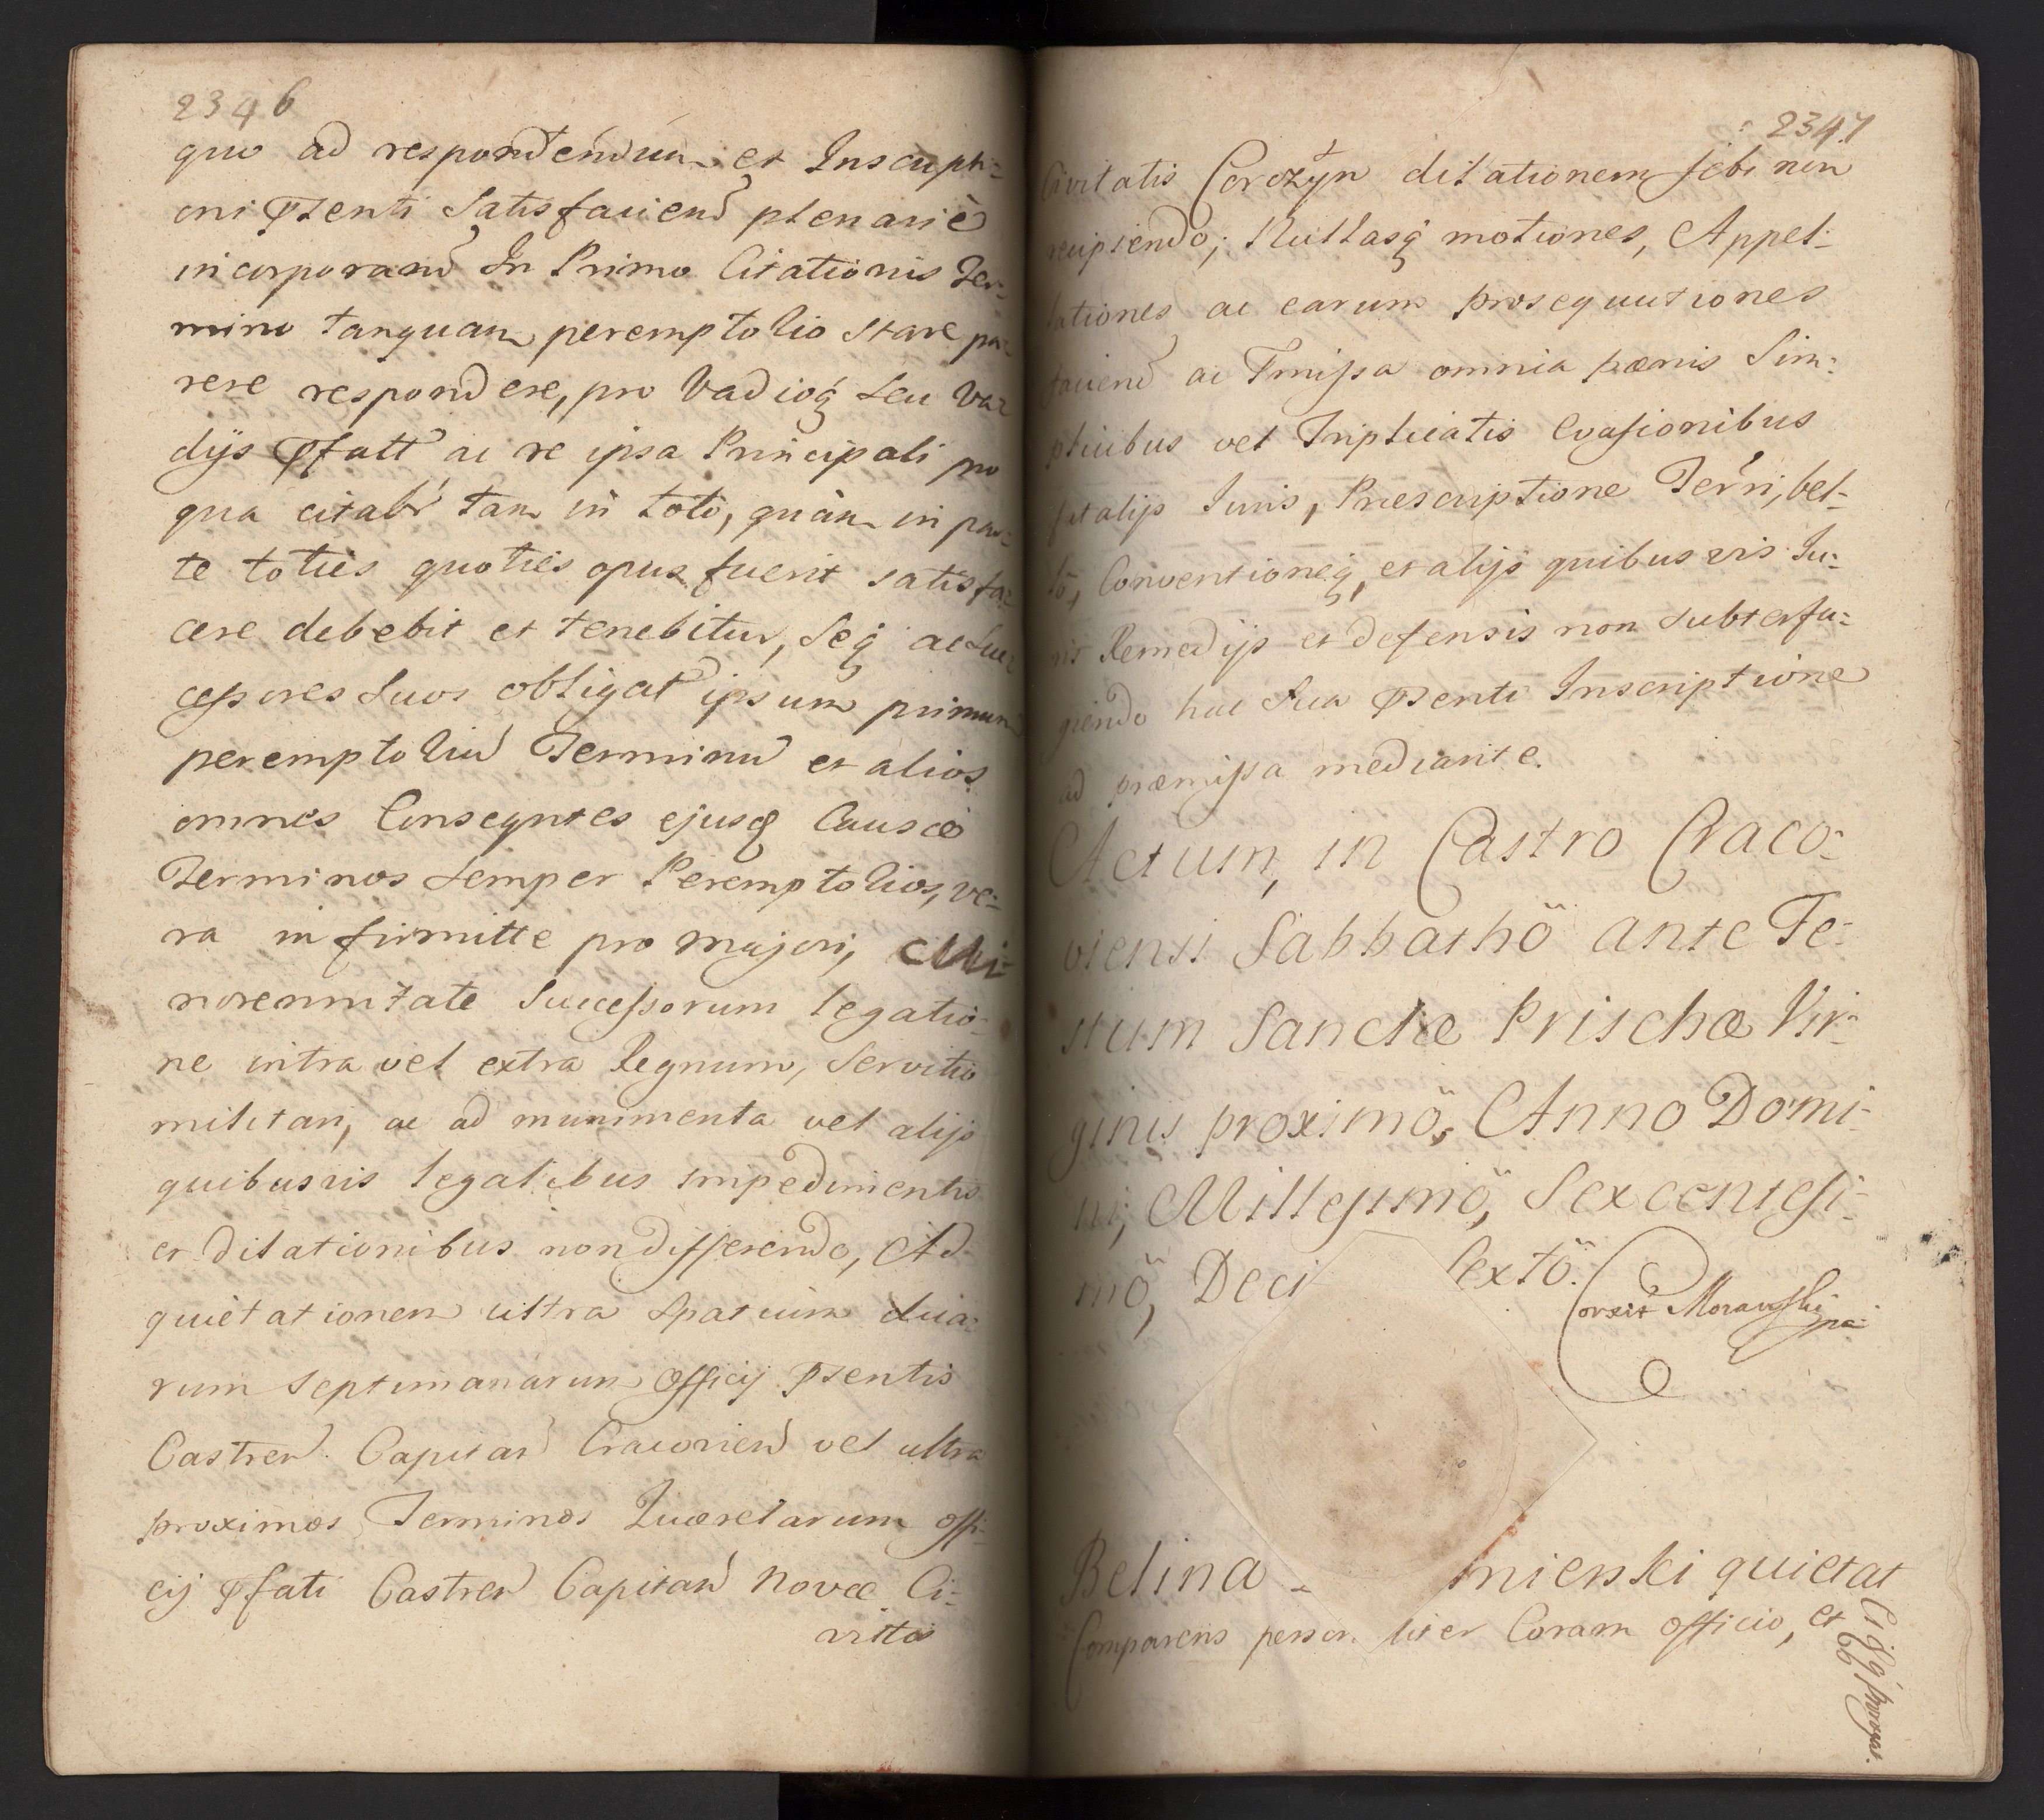 2346
quo ad respondendum et Inscripti=
oni Pſenti Satisfaciend plenariè
incorporand In Primo Citationis Ter=
mino tanquam peremptorio stare pa=
rere respondere, pro Vadioq́ seu Va=
dijs Pfatt ac re ipsa Principali pro
qua citabr tam in toto, quàm in par=
te toties quoties opus fuerit satisfa=
cere debebit et tenebitur, Seq́ ac Suc=
cessores Suos obligat ipsum primum
peremptoriu Terminu et alios
omnes Conseqntes ejusq Causæ
Terminos semper Peremptorios, ve=
ra infirmitte pro majori, Mi=
norennitate Successorum legatio=
ne intra vel extra Regnum, Servitio
militari, ac ad munimenta vel alijs
quibusvis legalibus impedimentis
et dilationibus non differendo, Ad
quietationem ultra Spatium dua=
rum septimanarum Officij Pſentis
Castren Capitan Cracovien vel ultra
proximos Terminos Quærelarum offi=
cij Pfati Castren Capitan Novæ Ci=
vittis
2347
Civitatis Corczyn dilationem sibi non
recipiendo; Nullasq́ motiones, Appel=
lationes ac earum prosequutiones
faciend ac Pmissa omnia pœnis Sim=
plicibus vel Triplicatis Evasionibus
fatalijs Iuris, Præscriptione Terri, bel=
lo, Conventioneq́, et alijs quibusvis Iu=
ris Remedijs et defensis non subterfu=
giendo hac sua Pſenti Inscriptione
ad præmissa mediante.
Actum, in Castro Craco=
viensi Sabbathö ante Fe=
stum Sanctæ Prischæ Vir=
ginis proximö, Anno Domi=
ni, Millesimö, Sexcentesi=
mö, Deci Sextö.
Corexit Moravski
mpa
Belina = mienski quietat
Comparens person liter Coram Officio, et